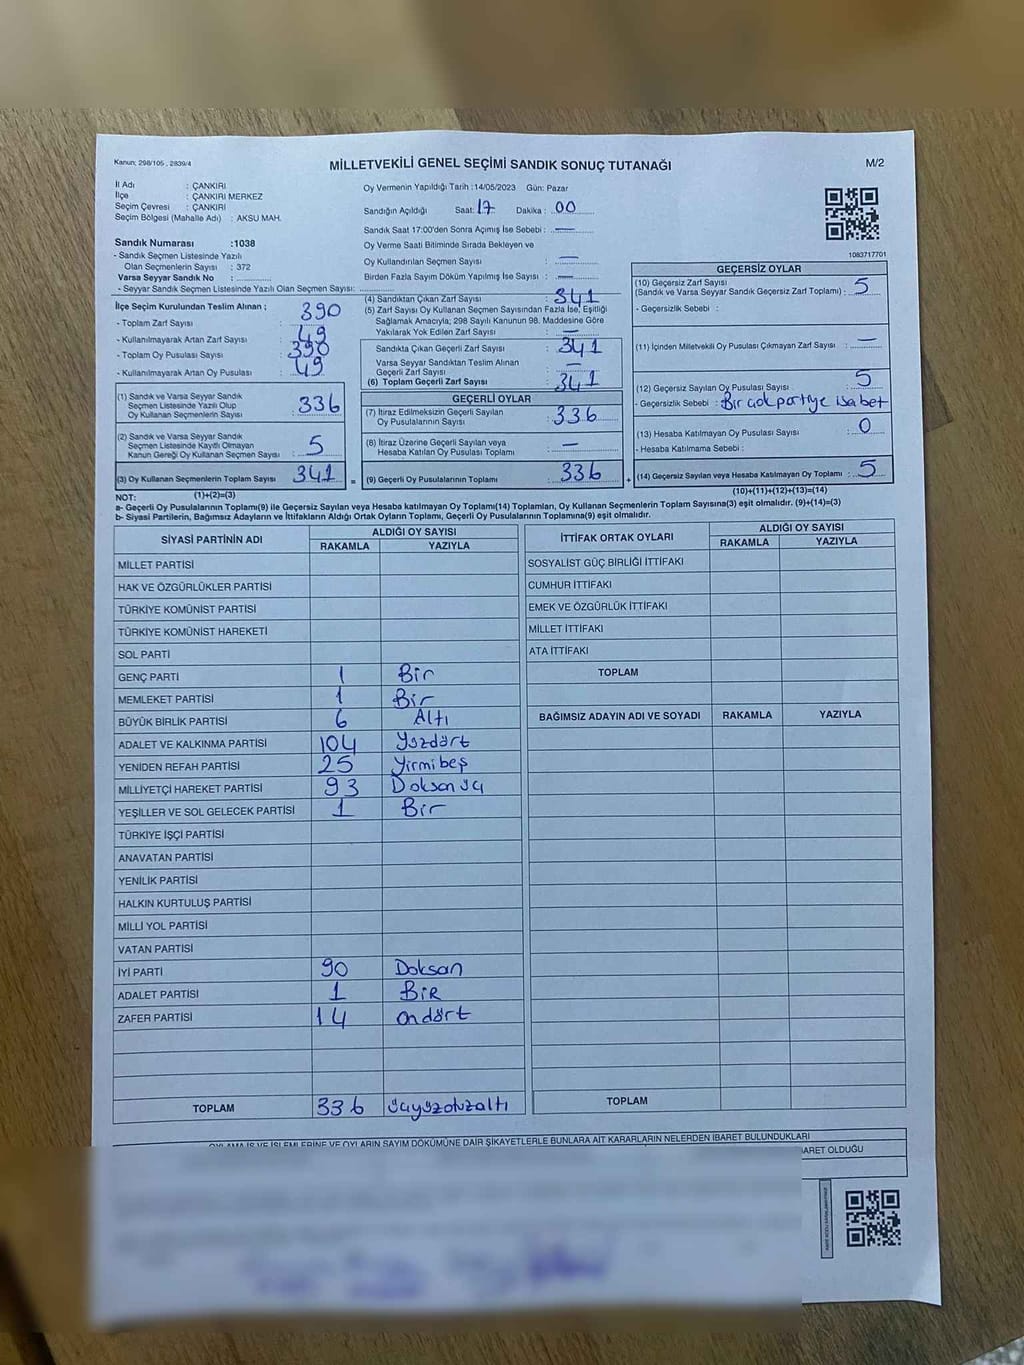 Kanun: 298/105 , 2839/4
MİLLETVEKİLİ GENEL SEÇİMİ SANDIK SONUÇ TUTANAĞI
M/2
İl Adı : ÇANKIRI
İlçe : ÇANKIRI MERKEZ
Seçim Çevresi : ÇANKIRI
Seçim Bölgesi (Mahalle Adı) : AKSU MAH.
Sandık Numarası :1038
- Sandık Seçmen Listesinde Yazılı
Olan Seçmenlerin Sayısı : 372
Varsa Seyyar Sandık No :
- Seyyar Sandık Seçmen Listesinde Yazılı Olan Seçmen Sayısı:
Oy Vermenin Yapıldığı Tarih :14/05/2023 Gün: Pazar
Sandığın Açıldığı Saat: 17 Dakika : 00
Sandık Saat 17:00'den Sonra Açımış İse Sebebi : —
Oy Verme Saati Bitiminde Sırada Bekleyen ve
Oy Kullandırılan Seçmen Sayısı : —
Birden Fazla Sayım Döküm Yapılmış İse Sayısı : —
1083717701
İlçe Seçim Kurulundan Teslim Alınan ;
- Toplam Zarf Sayısı : 390
- Kullanılmayarak Artan Zarf Sayısı : 49
- Toplam Oy Pusulası Sayısı : 390
- Kullanılmayarak Artan Oy Pusulası : 49
(1) Sandık ve Varsa Seyyar Sandık
Seçmen Listesinde Yazılı Olup
Oy Kullanan Seçmenlerin Sayısı : 336
(2) Sandık ve Varsa Seyyar Sandık
Seçmen Listesinde Kayıtlı Olmayan
Kanun Gereği Oy Kullanan Seçmen Sayısı : 5
(3) Oy Kullanan Seçmenlerin Toplam Sayısı : 341
(4) Sandıktan Çıkan Zarf Sayısı : 341
(5) Zarf Sayısı Oy Kullanan Seçmen Sayısından Fazla İse, Eşitliği
Sağlamak Amacıyla, 298 Sayılı Kanunun 98. Maddesine Göre
Yakılarak Yok Edilen Zarf Sayısı : —
Sandıkta Çıkan Geçerli Zarf Sayısı : 341
Varsa Seyyar Sandıktan Teslim Alınan
Geçerli Zarf Sayısı : —
(6) Toplam Geçerli Zarf Sayısı : 341
GEÇERLİ OYLAR
(7) İtiraz Edilmeksizin Geçerli Sayılan
Oy Pusulalarının Sayısı : 336
(8) İtiraz Üzerine Geçerli Sayılan veya
Hesaba Katılan Oy Pusulası Toplamı : —
= (9) Geçerli Oy Pusulalarının Toplamı : 336 +
GEÇERSİZ OYLAR
(10) Geçersiz Zarf Sayısı
(Sandık ve Varsa Seyyar Sandık Geçersiz Zarf Toplamı) : 5
- Geçersizlik Sebebi :
(11) İçinden Milletvekili Oy Pusulası Çıkmayan Zarf Sayısı : —
(12) Geçersiz Sayılan Oy Pusulası Sayısı : 5
- Geçersizlik Sebebi : Bir çok partiye isabet
(13) Hesaba Katılmayan Oy Pusulası Sayısı : 0
- Hesaba Katılmama Sebebi :
(14) Geçersiz Sayılan veya Hesaba Katılmayan Oy Toplamı : 5
NOT: (1)+(2)=(3)
(10)+(11)+(12)+(13)=(14)
a- Geçerli Oy Pusulalarının Toplamı(9) ile Geçersiz Sayılan veya Hesaba Katılmayan Oy Toplamı(14) Toplamları, Oy Kullanan Seçmenlerin Toplam Sayısına(3) eşit olmalıdır. (9)+(14)=(3)
b- Siyasi Partilerin, Bağımsız Adayların ve İttifakların Aldığı Ortak Oyların Toplamı, Geçerli Oy Pusulalarının Toplamına(9) eşit olmalıdır.
SİYASİ PARTİNİN ADI ALDIĞI OY SAYISI
RAKAMLA YAZIYLA
MİLLET PARTİSİ
HAK VE ÖZGÜRLÜKLER PARTİSİ
TÜRKİYE KOMÜNİST PARTİSİ
TÜRKİYE KOMÜNİST HAREKETİ
SOL PARTİ
GENÇ PARTİ 1 Bir
MEMLEKET PARTİSİ 1 Bir
BÜYÜK BİRLİK PARTİSİ 6 Altı
ADALET VE KALKINMA PARTİSİ 104 Yüzdört
YENİDEN REFAH PARTİSİ 25 Yirmibeş
MİLLİYETÇİ HAREKET PARTİSİ 93 Doksanüç
YEŞİLLER VE SOL GELECEK PARTİSİ 1 Bir
TÜRKİYE İŞÇİ PARTİSİ
ANAVATAN PARTİSİ
YENİLİK PARTİSİ
HALKIN KURTULUŞ PARTİSİ
MİLLİ YOL PARTİSİ
VATAN PARTİSİ
İYİ PARTİ 90 Doksan
ADALET PARTİSİ 1 BİR
ZAFER PARTİSİ 14 ondört
TOPLAM 336 üçyüzotuzaltı
İTTİFAK ORTAK OYLARI ALDIĞI OY SAYISI
RAKAMLA YAZIYLA
SOSYALİST GÜÇ BİRLİĞİ İTTİFAKI
CUMHUR İTTİFAKI
EMEK VE ÖZGÜRLÜK İTTİFAKI
MİLLET İTTİFAKI
ATA İTTİFAKI
TOPLAM
BAĞIMSIZ ADAYIN ADI VE SOYADI RAKAMLA YAZIYLA
TOPLAM
OYLAMA İŞ VE İŞLEMLERİNE VE OYLARIN SAYIM DÖKÜMÜNE DAİR ŞİKAYETLERLE BUNLARA AİT KARARLARIN NELERDEN İBARET BULUNDUKLARI
BARET OLDUĞU